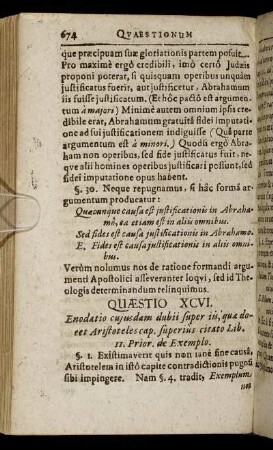 674 QVAESTIONUM
que præcipuam suæ gloriationis partem posuit.
Pro maximè ergò credibili, imò certò Judæis
proponi poterar, si quisquam operibus unquàm
justificatus fuerit, aut justificetur, Abrahamum
iis fuisse justificatum. (Et hôc pactô est argumen-
tum à majori) Minimè autem omnium ipsis cre-
dibile erat, Abrahamum gratuitâ fidei imputatio-
ne ad sui justificationem indiguisse (Quâ parte
argumentum est à minori.) Quodsi ergò Abra-
ham non operibus, sed fide justificatus fuit, ne-
que alii homines operibus justificari possunt, sed
fidei imputatione opus habent.
§. 30. Neque repugnamus, si hâc formâ ar-
gumentum producatur:
Quacunque causa est justificationis in Abraha-
mô, ea etiam est in aliis omnibus.
Sed fides est causa justificationis in Abrahamo.
E. Fides est causa justificationis in aliis omni-
bus.
Verùm nolumus nos de ratione formandi argu-
menti Apostolici asseveranter loqvi, sed id The-
ologis determinandum relinquimus.
QUÆSTIO XCVI.
Enodatio cujusdam dubii super iis, quæ do-
cet Aristoteles cap. superius citato Lib.
II. Prior. de Exemplo.
§. 1. Existimaverit quis non tanè sine causâ,
Aristotelem in istô capite contradictionis pugnam
sibi impingere. Nam §. 4. tradit, Exemplum
non